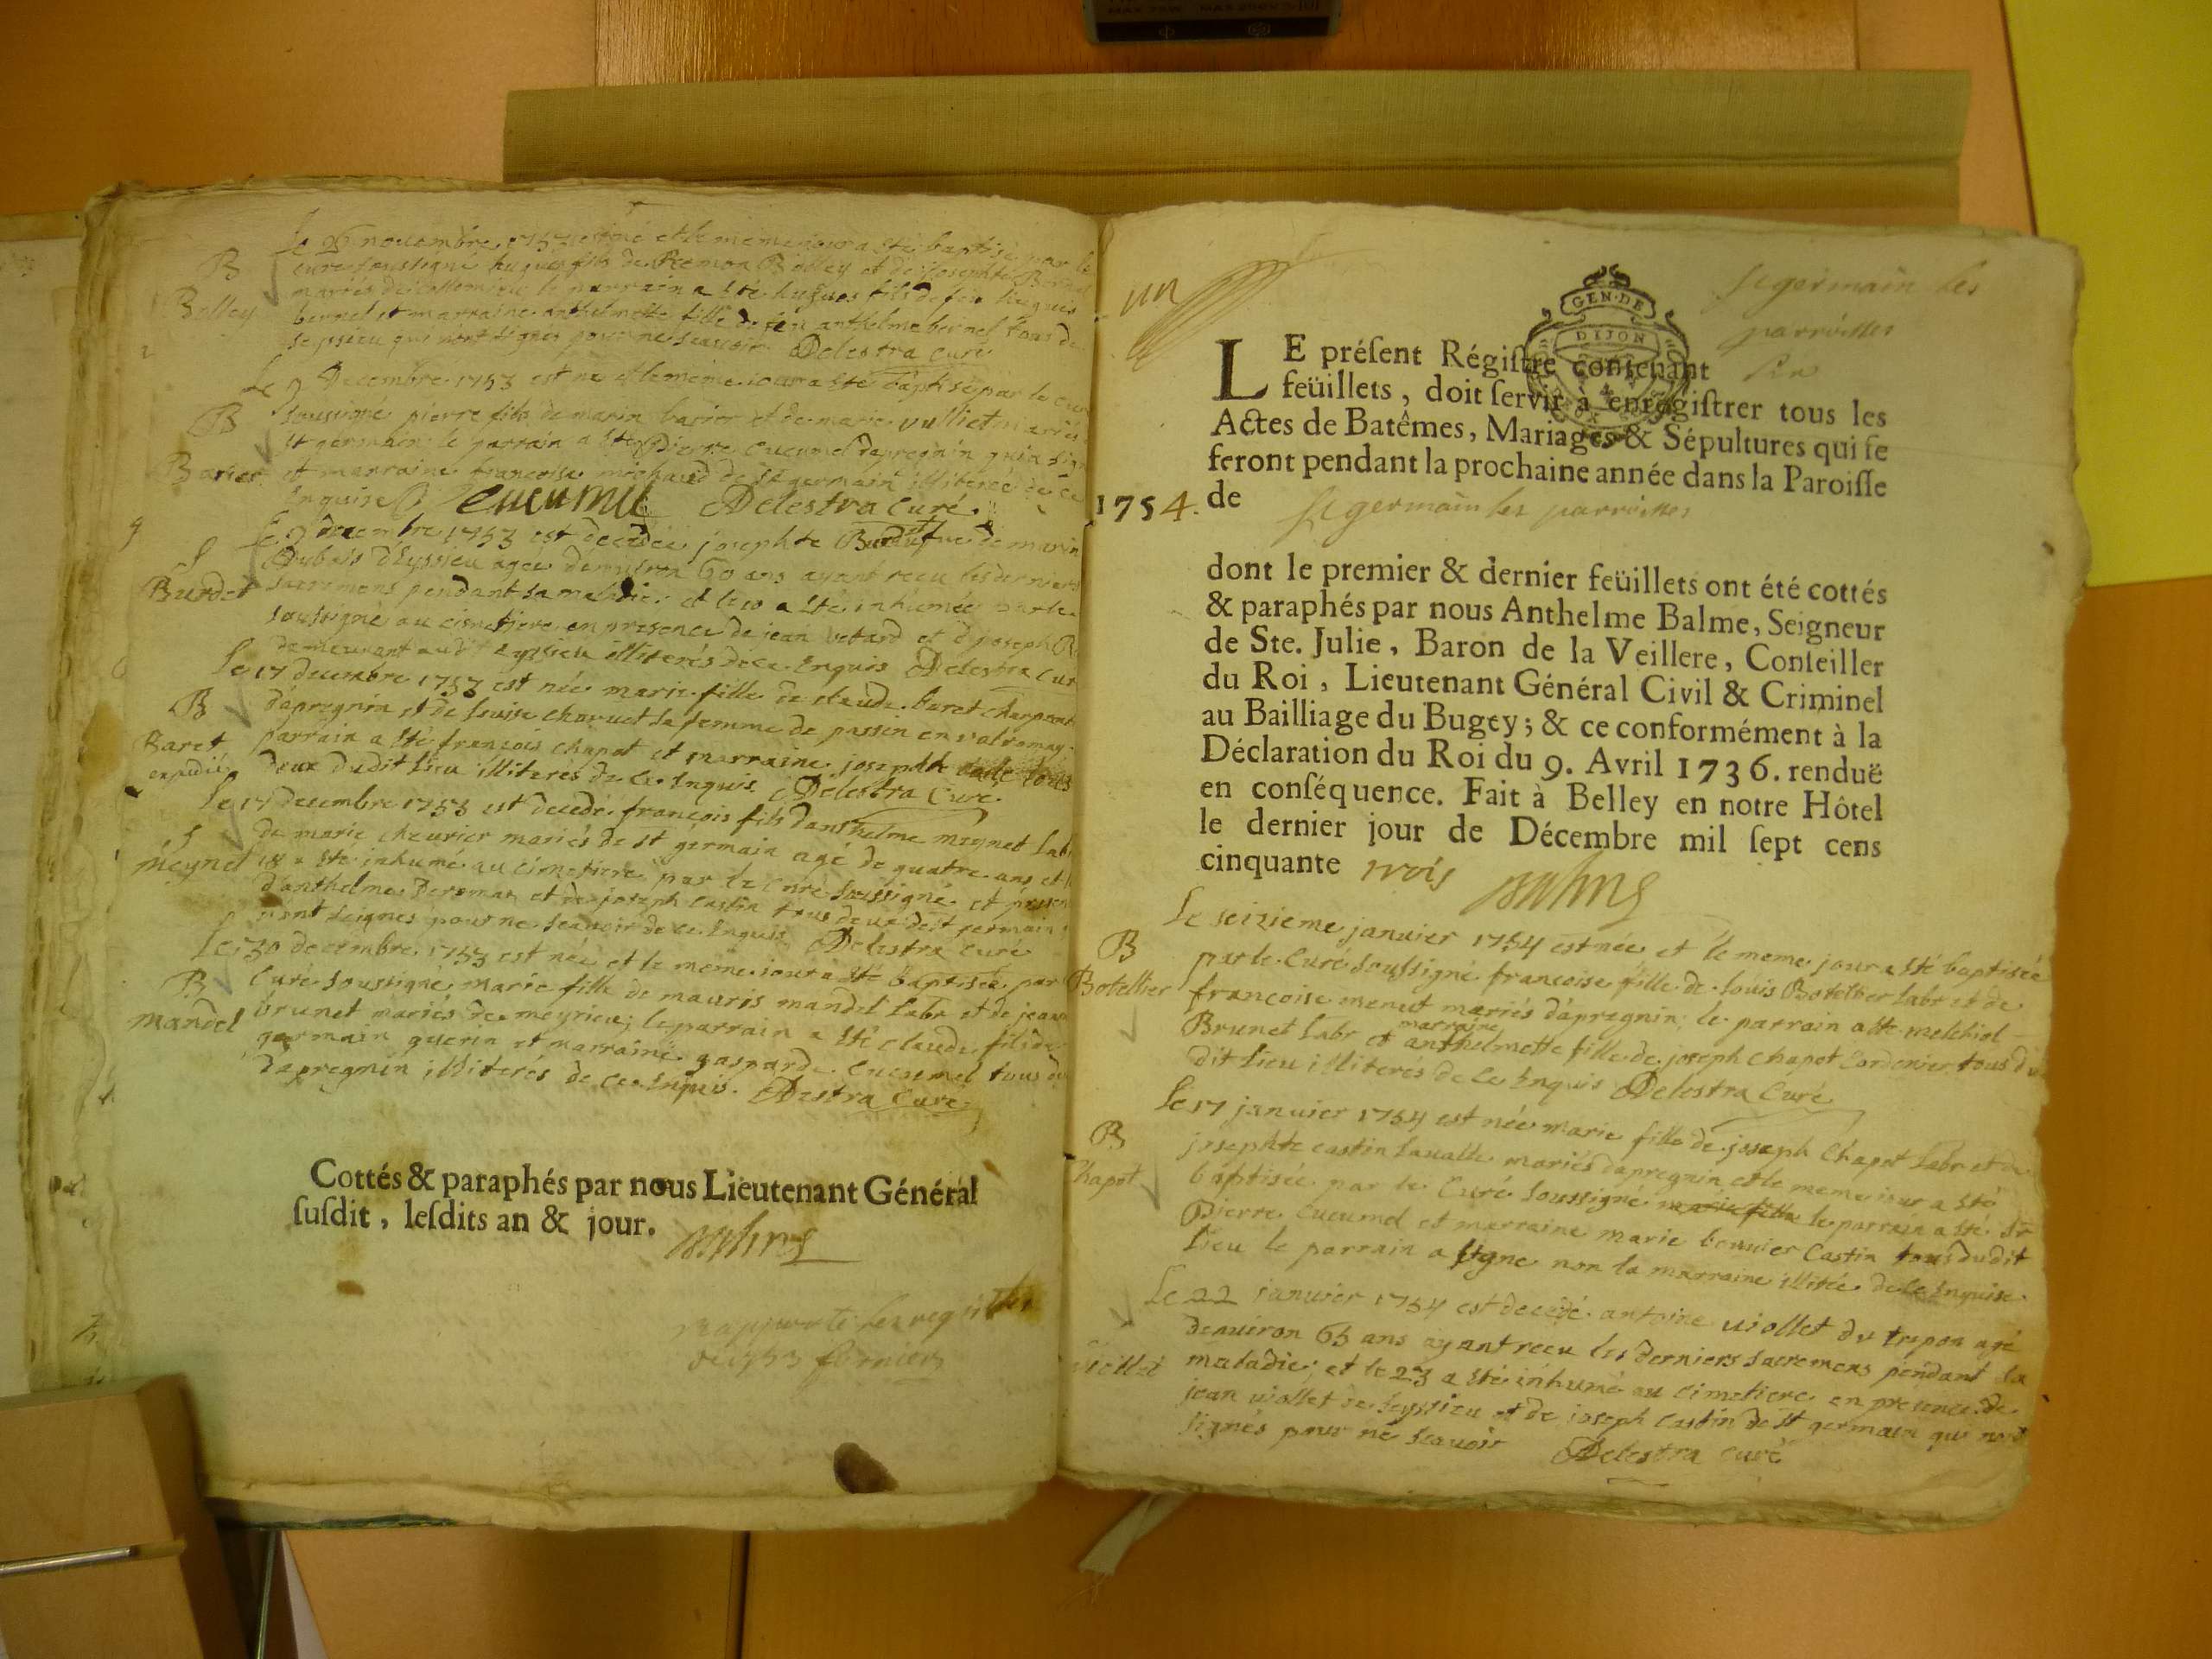 B
Bolley
Le 26 novembre 1753 est né et le meme jour a sté baptisé par le
curé soussigné hugues fils de Remon Bolley et de josephte
mariés de le parrain a sté hugues fils de feu hugues
bernel et marraine anthelmette fille de feu anthelme bernel tous de
seyssieu qui n'ont signés pour ne scauoir Delestra curé
B
Barier
Le 9 Decembre 1753 est né et le meme jour a sté baptisé par le cur
soussigné pierre fils de marin barier et de marie vulliet mariés
st germain le parrain a sté Pierre Cucumel dapregnin qui a sign
et marraine francoise michaud de st germain illiterée de ce
Enquise Cucumel Delestra Curé
S
Burdet
Le 9 decembre 1753 est decedée josephte Burdet fue de marin
Dubois dEyssieu agée denuiron 60 ans ayant receu les derniers
sacremens pendant sa maladie; et le 10 a sté inhumée par le
soussigné au cimetiere en presence de jean vetard et de joseph
demeurant audt Eyssieu illiterés de ce Enquis Delestra Cur
B
Baret
expedié
Le 17 decembre 1753 est née marie fille de claude baret charpant
d'apregnin et de Louise charuet sa femme de passin en valromay
parrain a sté francois chapot et marraine josephte tous
deux dudit Lieu illiterés de ce Enquis Delestra Curé
S
meynet
Le 17 decembre 1753 est decedé francois fils danthelme meynet Lab
de marie cheurier mariés de st germain agé de quatre ans et l
18 a sté inhumé au cimetiere par le curé soussigné et presen
d'anthelme et de joseph Castin tous deux de st germain
n'ont seignes pour ne scauoir de ce Enquis Delestra Curé
B
mandel
Le 30 decembre 1753 est née et le meme jour a sté baptisée par
Curé soussigné marie fille de mauris mandel Labr et de jeann
brunet mariés de meyrieu; le parrain a sté claude fils de
germain guerin et marraine gasparde Cucumel tous du
dapregnin illiterés de ce Enquis. Delestra Curé
Cottés & paraphés par nous Lieutenant Général
susdit, lesdits an & jour.
un
GEN·DE
DIJON
St germain les
parroisses
six
LE présent Régistre contenant
feüillets, doit servir à enrégistrer tous les
Actes de Batêmes, Mariages & Sépultures qui se
feront pendant la prochaine année dans la Paroisse
1754. de St germain les parroisses
dont le premier & dernier feüillets ont été cottés
& paraphés par nous Anthelme Balme, Seigneur
de Ste. Julie, Baron de la Veillere, Conseiller
du Roi, Lieutenant Général Civil & Criminel
au Bailliage du Bugey; & ce conformément à la
Déclaration du Roi du 9. Avril 1736. renduë
en conséquence. Fait à Belley en notre Hôtel
le dernier jour de Décembre mil sept cens
cinquante trois
B
Botellier
Le seizieme januier 1754 est née et le meme jour a sté baptisée
par le Curé soussigné francoise fille de Louis Botellier Labr et de
francoise menet mariés d'apregnin; le parrain a ste melchiol
Brunet Labr et marraine anthelmette fille de joseph chapot Cordonier tous du
dit Lieu illiterés de ce Enquis Delestra Curé
B
Chapot
Le 17 januier 1754 est née marie fille de joseph Chapot Labr et de
josephte castin Laualle mariés dapregnin et le meme jour a sté
baptisée par le Curé soussigné marie fille le parrain a sté Sr
Pierre Cucumel et marraine marie bouuier Castin tous dudit
Lieu le parrain a signe non la marraine illitée de ce Enquise
Viollet
Le 22 januier 1754 est decedé antoine uiollet du trepon agé
denuiron 65 ans ayant receu les derniers sacremens pendant sa
maladie; et le 23 a sté inhumé au cimetiere en presence de
jean uiollet de seyssieu et de joseph castin de st germain qui n'ont
signés pour ne scauoir Delestra curé